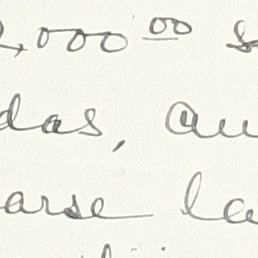 ,000 00
das, au
arse la